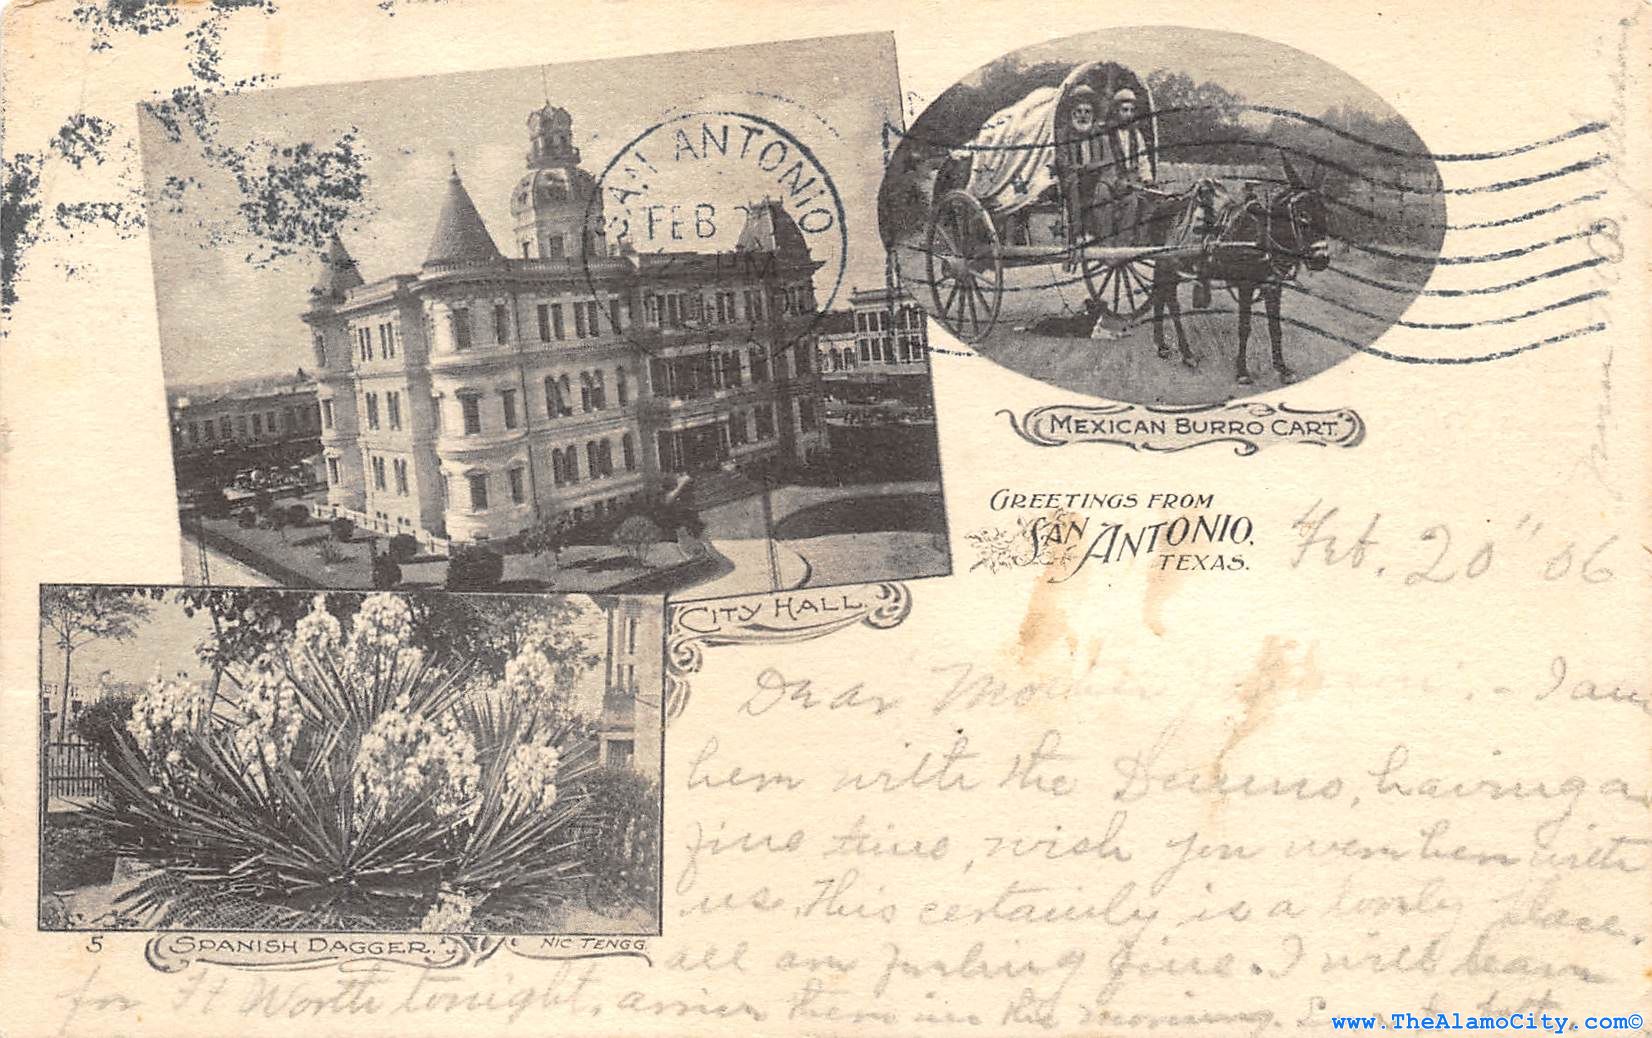 SAN ANTONIO
FEB 2
PM
MEXICAN BURRO CART.
GREETINGS FROM
SAN ANTONIO,
TEXAS.
Feb. 20" 06
CITY HALL.
Dear Mother - I am
here with the having a
fine time, wish you were here with
us. This certainly is a lovely place.
all am feeling fine. I will leave
for Ft Worth tonight. arrive there in the morning.
5 SPANISH DAGGER. NIC TENGG.
www.TheAlamoCity.com©